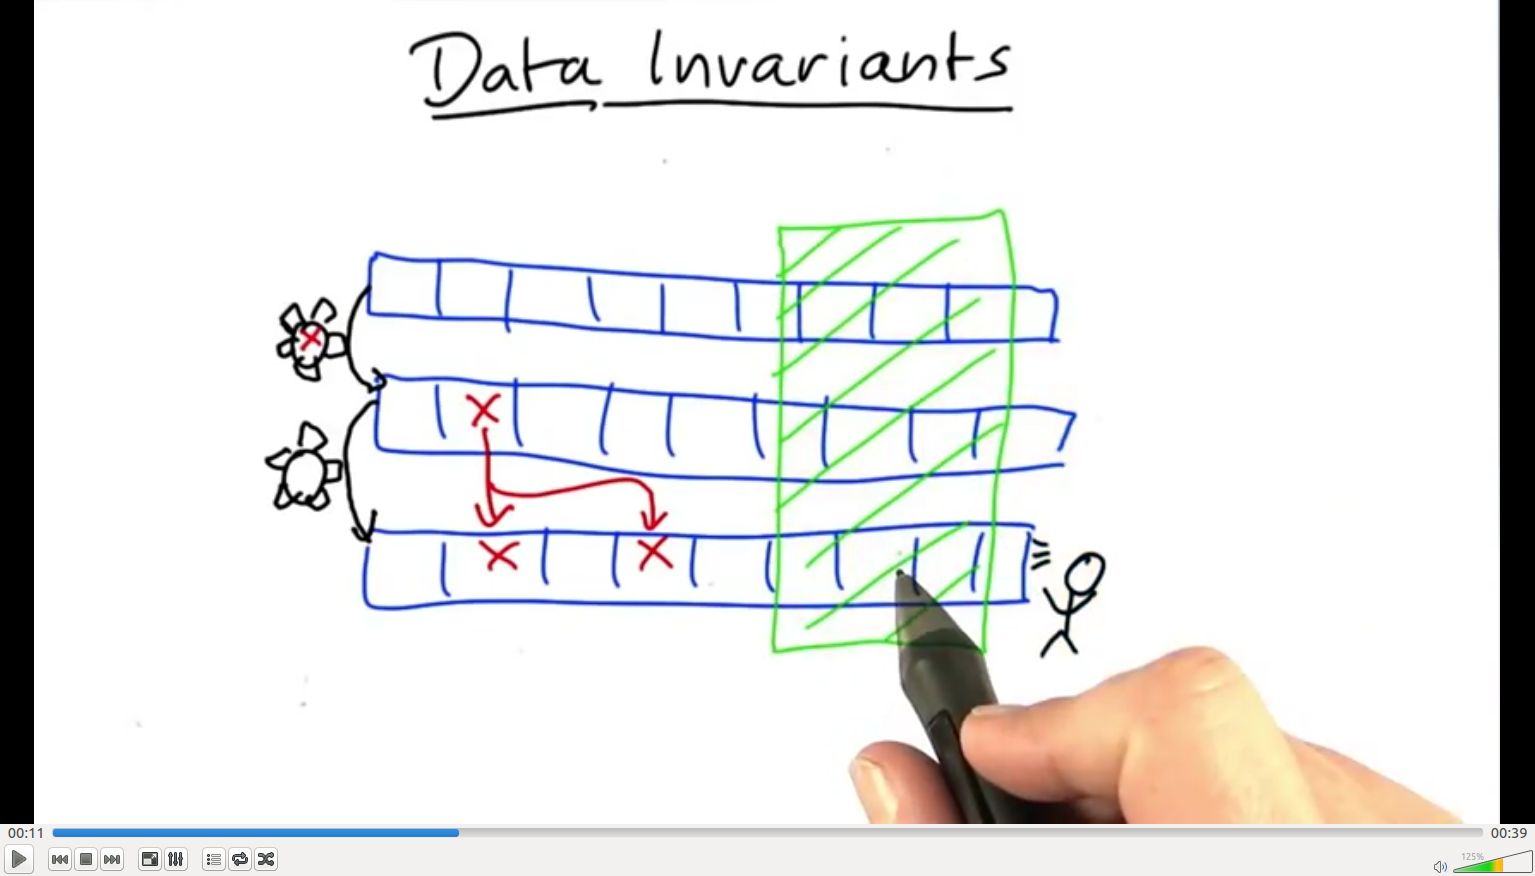 Data Invariants
00:11
00:39
125%